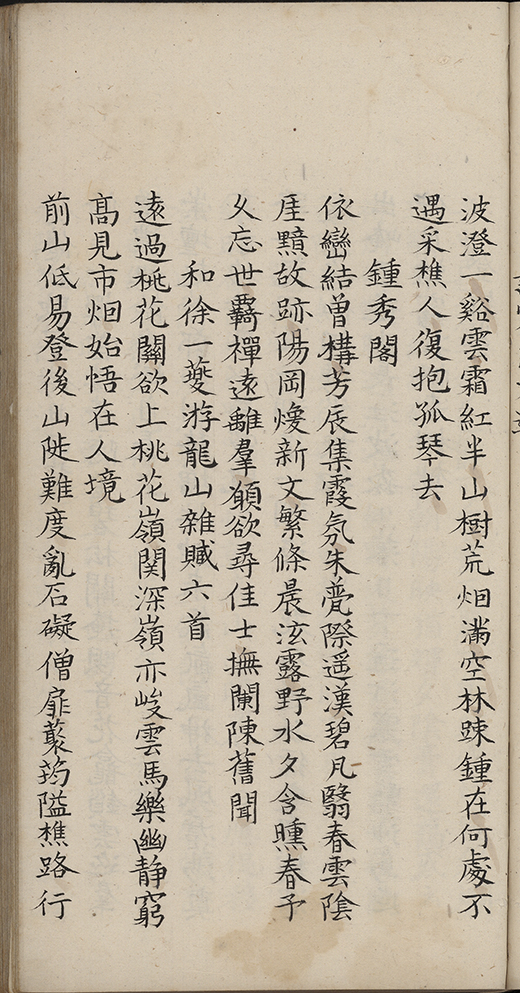 波澄一谿雲霜紅半山樹荒烟滿空林踈鍾在何處不
遇采樵人復抱孤琴去
鍾秀閣
依巒結曾構芳辰集霞氛朱甍際遥漢碧凡翳春雲陰
厓黯故跡陽岡燰新文繁條晨泫露野水夕含曛春予
乆忘世覊禪遠離羣顧欲尋佳士撫闌陳舊聞
和徐一夔游龍山雜賦六首
遠過桃花關欲上桃花嶺関深嶺亦峻雲馬樂幽静窮
高見市烟始悟在人境
前山低易登後山陡難度亂石礙僧扉叢筠隘樵路行